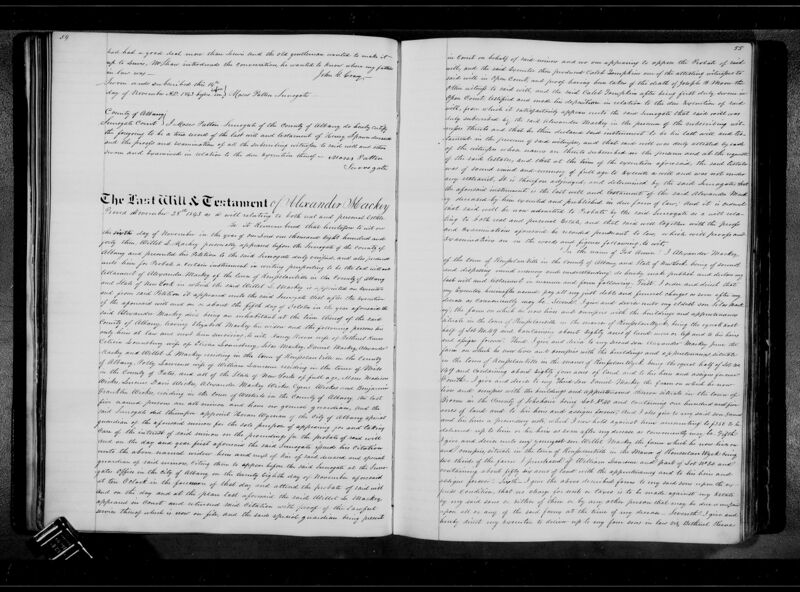 54
had had a good deal more than Lewis and the old gentleman wanted to make it
up to Lewis. Mr Shaw introduced the conversation he wanted to know where my father
in law was —
John G. Gray
Sworn and subscribed this 14th
day of November A.D. 1843 before me Moses Patten Surrogate
County of Albany
Surrogate Court I Moses Patten Surrogate of the County of Albany do hereby certify
the foregoing to be a true record of the last will and testament of Henry Spawn deceased
and the proofs and examination of all the subscribing witnesses to said will and others
sworn and examined in relation to the due execution thereof — Moses Patten
Surrogate
The Last Will & Testament of Alexander Mackey
Proved November 28th 1843 as a will relating to both real and personal Estate
Be it Remembered that heretofore to wit on
the sixth day of November in the year of our Lord one thousand eight hundred and
forty three, Willet S. Mackey personally appeared before the Surrogate of the County of
Albany and presented his Petition to the said Surrogate duly verified, and also produced
unto him for Probate a certain instrument in writing purporting to be the last will and
testament of Alexander Mackey of the town of Rensselaerville in the County of Albany
and State of New York in which the said Willet S. Mackey is appointed an executor
and from said Petition it appeared unto the said Surrogate that after the execution
of the aforesaid will and on or about the fifth day of October in the year aforesaid the
said Alexander Mackey died being an inhabitant at the time thereof of the said
County of Albany, leaving Elizabeth Mackey his widow and the following persons his
only heirs at law and next kin surviving; to wit, Nancy
Mackey and Willet S. Mackey residing in the town of Rensselaerville in the County
of Albany, Polly Lawrence wife of William Lawrence residing in the town of Milo
in the County of Yates, and all of the State of New York of full age,
Franklin Weeks, residing in the town of Westerlo in the County of Albany the last
five named persons are all minors and have no general guardian, and the
said Surrogate did thereupon appoint Thorn Wyman of the City of Albany special
guardian of the aforesaid minors for the sole purpose of appearing for and taking
care of the interest of said minors in the proceedings for the probate of said will
and on the day and year first aforesaid the said Surrogate issued his Citation
unto the above named widow heirs and next of kin of said deceased and special
guardian of said minors, citing them to appear before the said Surrogate at the Surro-
gates Office in the City of Albany on the twenty eighth day of November aforesaid
at ten O'clock in the forenoon of that day and attend the probate of said will
and on the day and at the place last aforesaid the said Willet S. Mackey
appeared in Court and returned said Citation with proof of the lawful
service thereof which is now on file, and the said special guardian being present
55
in Court on behalf of said minors and no one appearing to oppose the Probate of said
will, and the said Executor then produced Caleb Tompkins one of the attesting witnesses to
said will in Open Court, and proof having been taken of the death of Joseph H. Moore the
other witness to said will, and the said Caleb Tompkins after being first duly sworn in
Open Court testified and made his deposition in relation to the due execution of said
will, from which it satisfactorily appears unto the said Surrogate that said will was
duly subscribed by the said Alexander Mackey in the presence of the subscribing wit-
nesses thereto and that he then declared said instrument to be his last will and tes-
tament in the presence of said witnesses, and that said will was duly attested by each
of the witnesses whose names are thereto subscribed in the presence and at the request
of the said testator, and that at the time of the execution aforesaid, the said testator
was of sound mind and memory of full age to execute a will and was not under
any restraint. It is therefore adjudged, and determined by the said Surrogate that
the aforesaid instrument is the last will and testament of the said Alexander Mack-
ey deceased by him executed and published in due form of law; And it is ordered
that said will be now admitted to Probate by the said Surrogate as a will rela-
ting to both real and personal Estate, and that said will together with the proofs
and examinations aforesaid be recorded pursuant to law, which will proofs and
examinations are in the words and figures following, to wit,
In the name of God Amen. I Alexander Mackey
of the town of Rensselaerville in the County of Albany, and State of New York being of sound
and disposing mind memory and understanding do hereby make publish and declare my
last will and testament in manner and form following, First I order and direct that
my Executor hereinafter named pay all my just debts and funeral charges as soon after my
decease as conveniently may be. Second, I give and devise unto my eldest son Silas Mack-
ey, the farm on which he now lives and occupies with the buildings and appurtenances
situate in the town of Rensselaerville, in the manor of Rensselaerwyck, being the equal east
half of Lot No.
and assigns forever. Third I give and devise to my second son Alexander Mackey junr the
farm on which he now lives and occupies with the buildings and appurtenances situate
in the town of Rensselaerville in the manor of Rensselaerwyck being the equal half of Lot No
and containing about eighty four acres of land and to his heirs and assigns forever
Fourth. I give and devise to my third son Daniel Mackey the farm on which he now
lives and occupies with the buildings and appurtenances thereon situate in the town of
Broome in the County of Schoharie being Lot
acres of land and to his heirs and assigns forever, And I also give to my said son Daniel
and his heirs a promissory note which I now hold against him amounting to $150 to be
delivered up to him or his heirs as soon after my decease as conveniently may be. Fifth
I give and devise unto my youngest son Willet Mackey the farm which he now lives on
and occupies situate in the town of Rensselaerville in the Manor of Rensselaer Wyck being
two thirds of the farm I purchased of William Lawrence and part of Lot No 20 and
containing about fifty six acres of land with the appurtenances and to his heirs and
assigns forever. Sixth, I give the above described farms to my said sons upon the ex-
press condition, that no charge for rent or taxes is to be made against my Estate
by my said sons or either of them or by any other person that may be due or in arrears
upon all or any of the said farms at the time of my decease — Seventh I give and
hereby direct my Executor to deliver up to my four sons in law viz, Bethuel